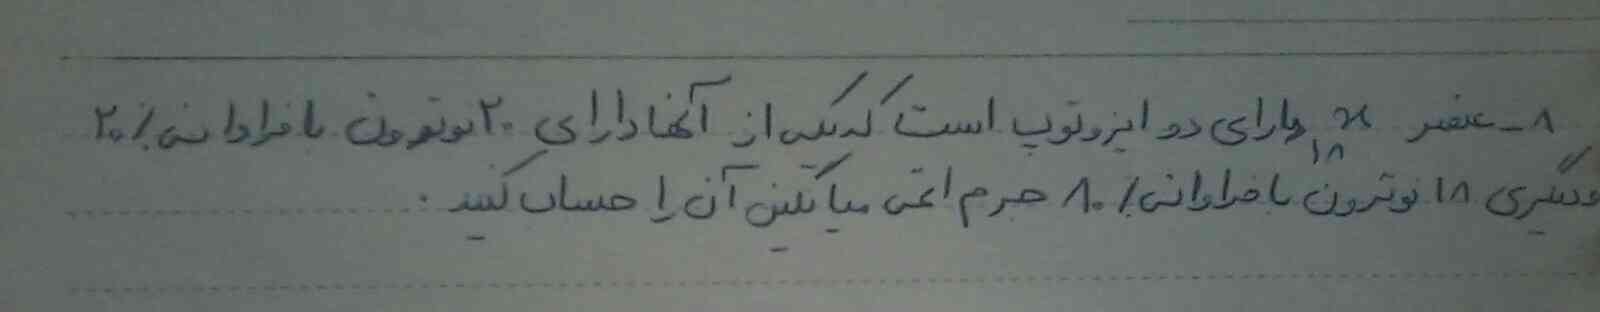 ۸ـ عنصر ₁₈x دارای دو ایزوتوپ است که یکی از آنها دارای ۲۰ نوترون با فراوانی ٪۲۰
و دیگری ۱۸ نوترون با فراوانی ٪۸۰ جرم اتمی میانگین آن را حساب کنید.